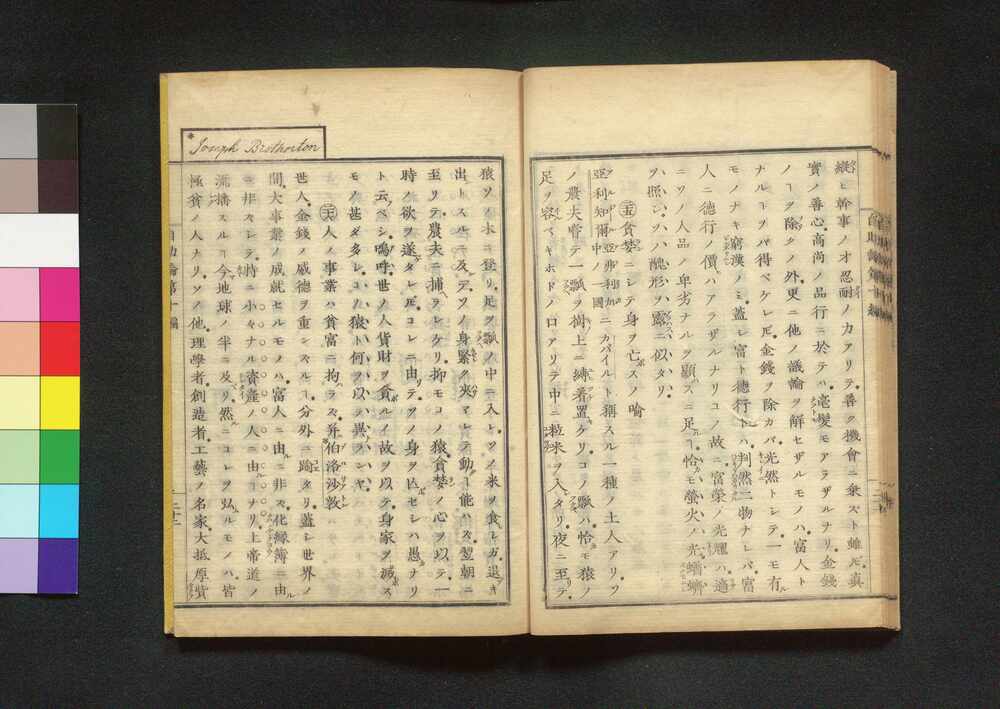 縱ヒ幹事ノ才忍耐ノ力アリテ善ク機會ニ乗スト雖𪜈眞
實ノ善心高尚ノ品行ニ於テハ毫髪モアラザルナリ金錢
ノヿヲ除クノ外更ニ他ノ議論ヲ解セザルモノハ富人ト
ナルヿヲバ得ベケレ𪜈金錢ヲ除カバ光然トシテ一モ有
モノナキ窮漢ノミ蓋シ富ト德行トハ判然二物ナレバ富
人ニ德行ノ價ハアラザルナリコノ故ニ富榮ノ光耀ハ適
ニソノ人品ノ卑劣ナルヲ顯スニ足ルヿ恰モ螢火ノ光蠐螬
ヲ照シソノ醜形ヲ露スニ似タリ
㉕貪婪ニシテ身ヲ亡スノ喩
亞利知爾中ノ一國亞弗利加ニカバイルト稱スル一種ノ土人アリソ
ノ農夫嘗テ一瓢ヲ樹上ニ縛着置ケリコノ瓢ハ恰モ猿ノ
足ヲ容ベキホドノ口アリテ中ニ粒米ヲ入タリ夜ニ至リテ
Joseph Brotherton
猿ソノ木ニ登リ足ヲ瓢ノ中ニ入レソノ米ヲ食レガ退キ
出ントスルニ及デソノ身緊ク夾マレテ動ヿ能ハズ翌朝ニ
至リテ農夫ニ捕ラレケリ抑モコノ猿貪婪ノ心ヲ以テ一
時ノ欲ヲ遂タレ𪜈コレニ由テソノ身ヲ亡セシハ愚ナリ
ト云ベシ嗚呼世ノ人貨財ヲ貪ルノ故ヲ以テ身家ヲ滅ス
モノ甚ダ多シコノ猿ト何ヲ以テ異ランヤ
㉖人ノ事業ハ貧富ニ拘ラズ并伯洛沙敦
世人金錢ノ威德ヲ重ンズルヿ分外ニ踰タリ蓋シ世界ノ
間大事業ノ成就セルモノハ富人ニ由ルニ非ズ化緣簿ニ由
ルニ非ズシテ特ニ小々ナル資產ノ人ニ由ルナリ上帝道ノ
流播スルヿ今地球ノ半ニ及ベリ然ルニコレヲ弘ルモノハ皆
極貧ノ人ナリソノ他理學者創造者工藝ノ名家大抵厚貲
自助論第十編
二十二